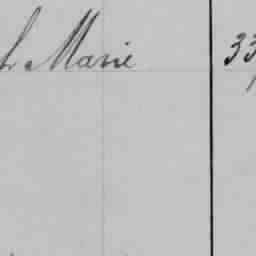 Marie 33